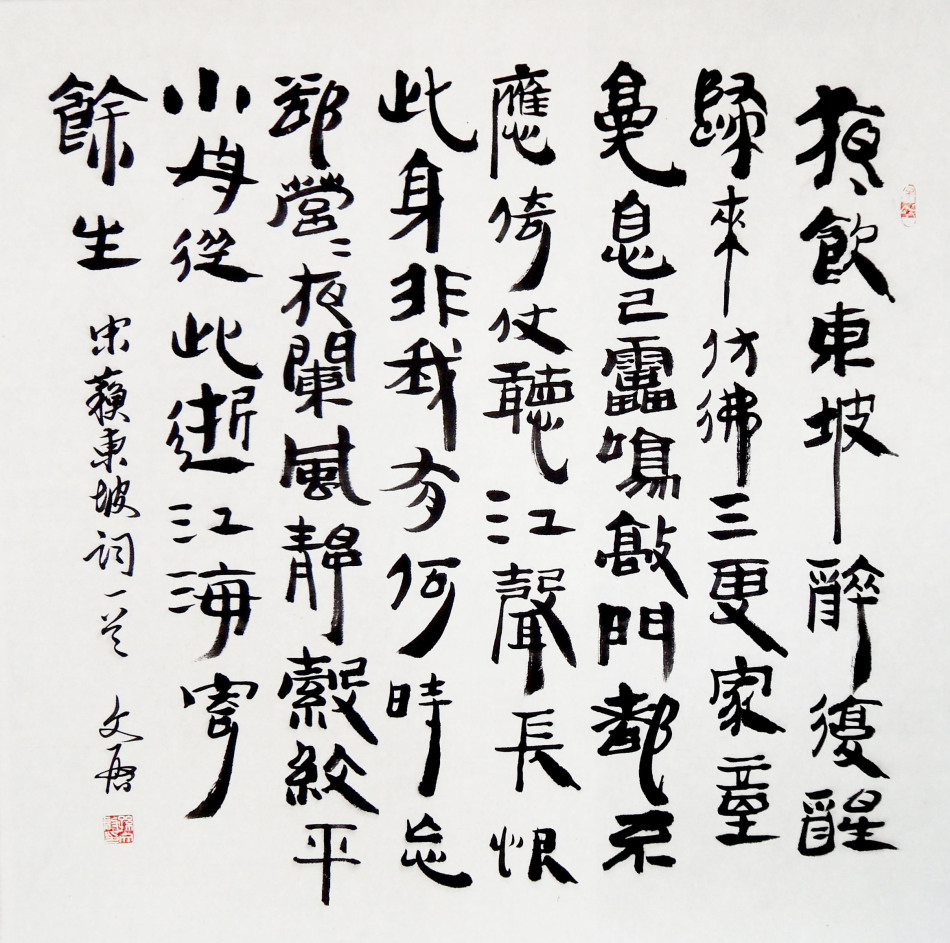 夜飲東坡醉復醒
歸來仿彿三更家童
鼻息已靁鳴敲門都不
應倚仗聽江聲長恨
此身非我有何時忘
卻營〻夜闌風靜縠紋平
小舟從此逝江海寄
餘生
宋蘓東坡詞一首 文